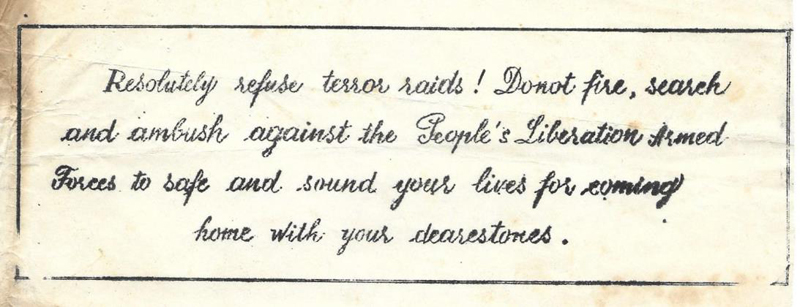 Resolutely refuse terror raids! Donot fire, search
and ambush against the People's Liberation Armed
Forces to safe and sound your lives for coming
home with your dearestones.